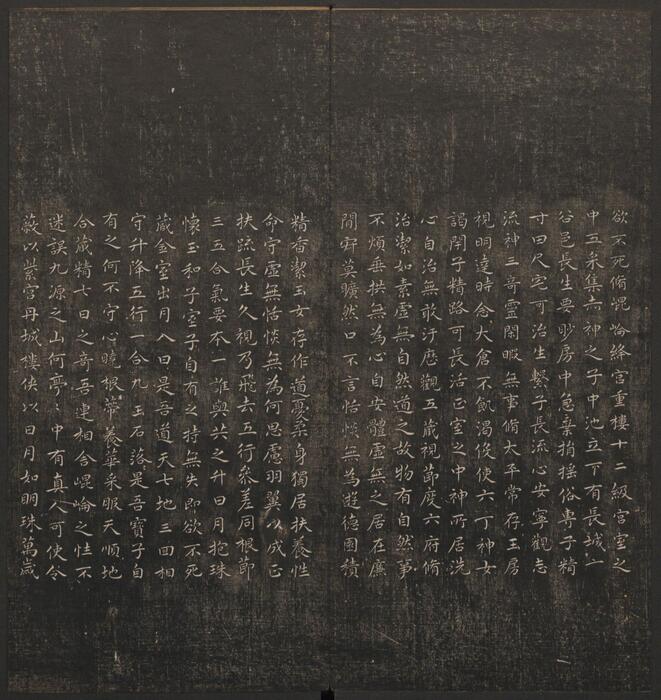 欲不死脩崐崘絳宮重樓十二級宮室之
中五采集赤神之子中池立下有長城玄
谷邑長生要眇房中急棄捐揺俗專子精
寸田尺宅可治生繫子長流心安寧觀志
流神三奇靈閑暇無事脩太平常存玉房
視明達時念大倉不飢渴役使六丁神女
謁閉子精路可長活正室之中神所居洗
心自治無敢汙歷觀五藏視節度六府脩
治潔如素虛無自然道之故物有自然事
不煩垂拱無為心自安體虛無之居在廉
間寂莫曠然口不言恬惔無為遊德園積
精香潔玉女存作道憂柔身獨居扶養性
命守虛無恬惔無為何思慮羽翼以成正
扶疏長生久視乃飛去五行參差同根節
三五合氣要本一誰與共之升日月抱珠
懷玉和子室子自有之持無失即欲不死
藏金室出月入日是吾道天七地三回相
守升降五行一合九玉石落落是吾寶子自
有之何不守心曉根蔕養華采服天順地
合藏精七日之奇吾連相合崐崘之性不
迷誤九源之山何亭亭中有真人可使令
蔽以紫宮丹城樓俠以日月如明珠萬歲